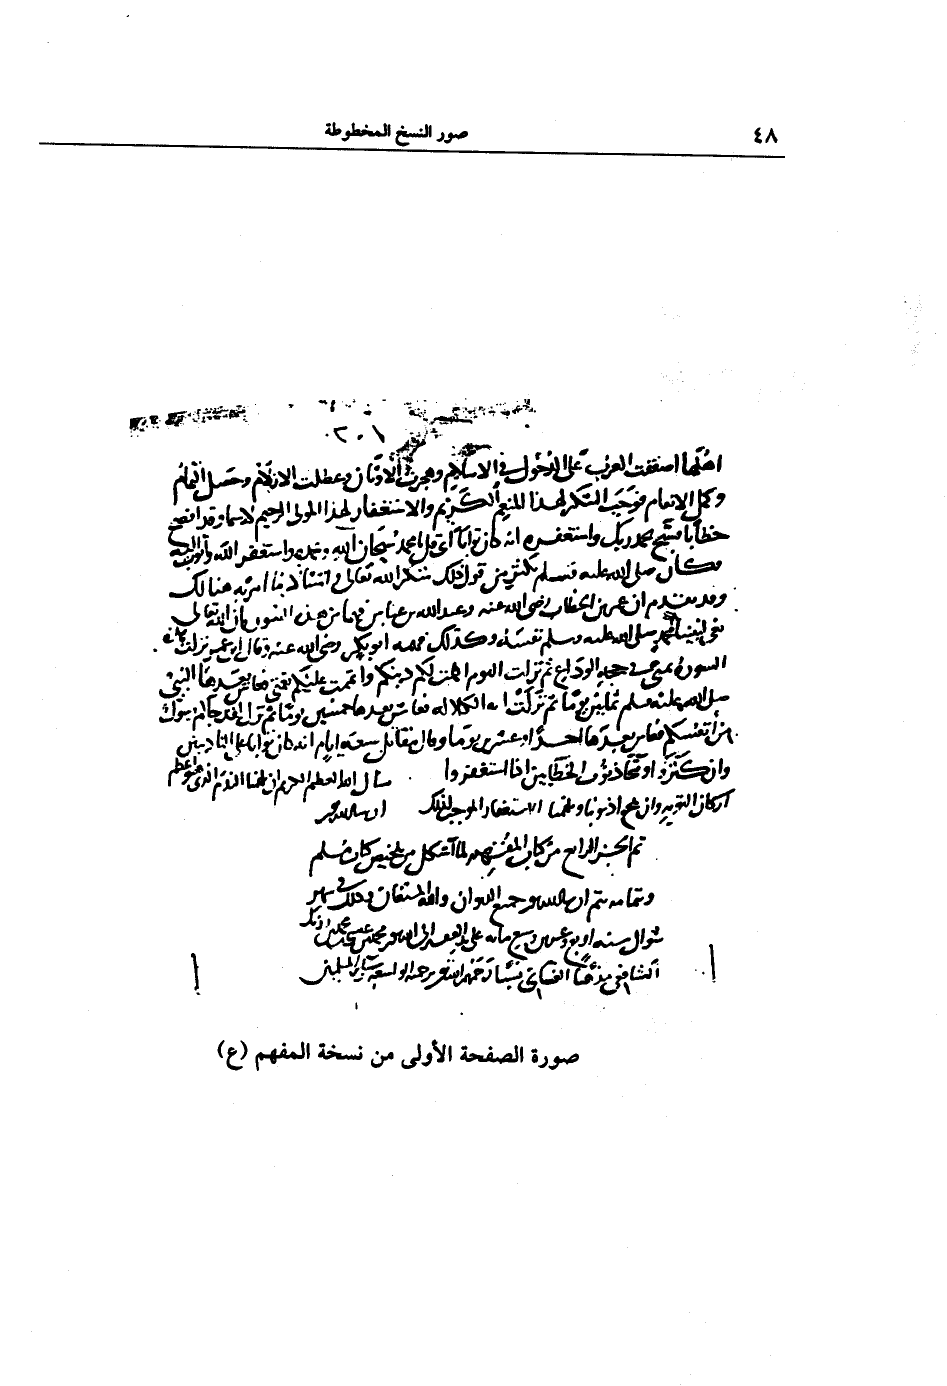 ٤٨
صور النسخ المخطوطة
٣٠١
اهلها اصفقت العرب على الدخول في الاسلام وهجرت الاوثان وعطلت الازلام وحصل التمام
وكمل الانعام فوجب الشكر لهذا المنعم الكريم والاستغفار لهذا المولى الرحيم لاسيما وقد افصح
خطابا فسبح بحمد ربك واستغفره انه كان توابا اى قل يا محمد سبحان الله وبحمده واستغفر الله وأتوب إليه
فكان صلى الله عليه وسلم يكثر من قول ذلك شكرا لله تعالى
وقد تقدم ان عمر بن الخطاب رضي الله عنه وعبد الله بن عباس فهما من هذه السورة أن الله تعالى
نعى لنبيه محمد صلى الله عليه وسلم نفسه وكذلك فهمه ابو بكر رضي الله عنه وقال ابن عمر نزلت هذه
السورة بمنى في حجة الوداع ثم نزلت اليوم اكملت لكم دينكم واتممت عليكم نعمتي فعاش بعدها النبي
صلى الله عليه وسلم ثمانين يوما ثم نزلت اية الكلالة فعاش بعدها خمسين يوما ثم نزل لقد جاكم رسول
من أنفسكم فعاش بعدها احدا وعشرين يوما وقال مقاتل سبعة ايام انه كان توابا على التاديبن
وان كثروا الخطايين اذا استغفروا نسال الله العظيم الكريم ان يلهمنا الندم الذي هو اعظم
اركان التوبة وان يمحو ذنوبنا ويلهمنا الاستغفار الموجب لذلك
تم الجزء الرابع من كتاب المفهم لما أشكل من تلخيص كتاب مسلم
وبتمامه تم جميع الديوان والله المستعان وذلك في شهر
شوال سنة
الشافعي مذهبا
صورة الصفحة الأولى من نسخة المفهم (ع)